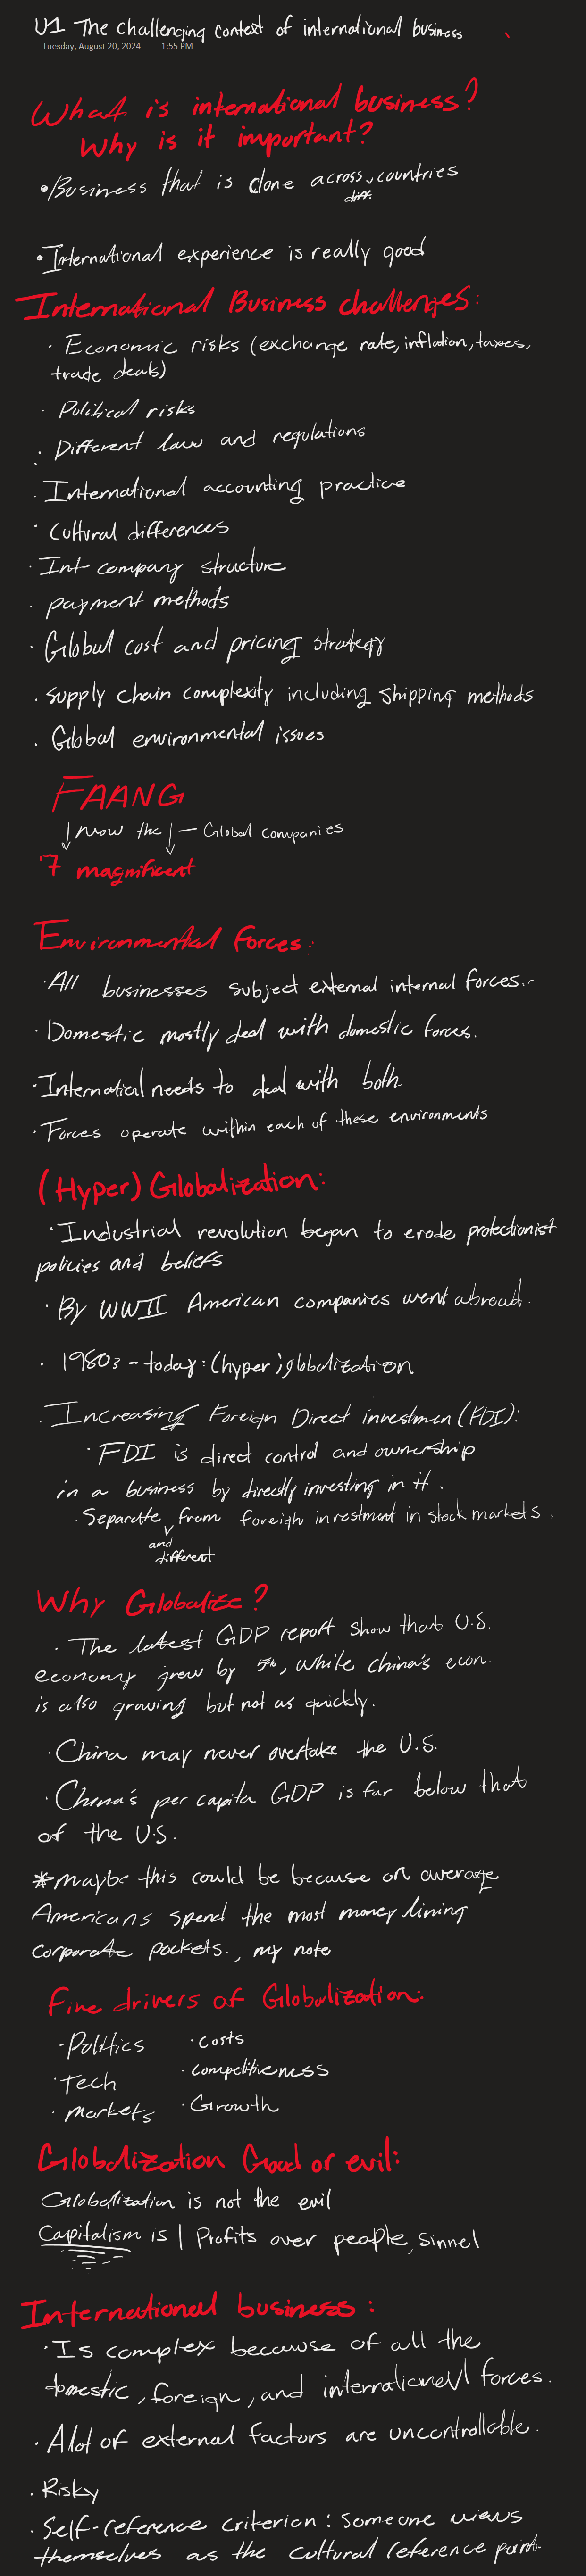 U1 The challenging context of international business
Tuesday, August 20, 2024 1:55 PM
What is international business?
Why is it important?
•Business that is done across ˬ countries
diff.
•International experience is really good
International Business challenges:
· Economic risks (exchange rate, inflation, taxes,
trade deals)
· Political risks
· Different law and regulations
· International accounting practice
· Cultural differences
· Int company structure
· payment methods
· Global cost and pricing strategy
· supply chain complexity including shipping methods
· Global environmental issues
FAANG
↓ now the ↓ — Global companies
'7 magnificent
Environmental Forces:
·All businesses subject external internal forces.
·Domestic mostly deal with domestic forces.
·Internatical needs to deal with both
·Forces operate within each of these environments
(Hyper) Globalization:
·Industrial revolution began to erode protectionist
policies and beliefs
·By WWII American companies went abroad.
· 1980s - today: (hyper) globalization
· Increasing Foreign Direct investmen (FDI):
· FDI is direct control and ownership
in a business by directly investing in it.
· Separate ˅ from foreign investment in stock markets.
and
different
Why Globalize?
· The latest GDP report show that U.S.
economy grew by 5%, while China's econ.
is also growing but not as quickly.
·China may never overtake the U.S.
·China's per capita GDP is far below that
of the U.S.
*maybe this could be because on average
Americans spend the most money lining
corporate pockets., my note
Five drivers of Globalization:
·Politics ·costs
·Tech ·competitiveness
·markets ·Growth
Globalization Good or evil:
Globalization is not the evil
Capitalism is | Profits over people,
International business:
·Is complex because of all the
domestic, foreign, and international forces.
·A lot of external factors are uncontrollable.
·Risky
·Self-reference criterion: someone views
themselves as the cultural reference point.